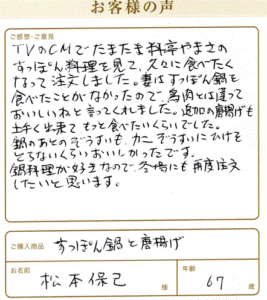 お客様の声
ご感想・ご意見
TVのCMでたまたま料亭やまさの
すっぽん料理を見て、久々に食べたく
なって注文しました。妻はすっぽん鍋を
食べたことがなかったので、鳥肉とは違って
おいしいねと言ってくれました。追加の唐揚げも
上手く出来て もっと食べたいくらいでした。
鍋のあとのぞうすいも、カニぞうすいにひけを
とらないくらいおいしかったです。
鍋料理が好きなので、冬場にも再度注文
したいと思います。
ご購入商品 すっぽん鍋と唐揚げ
お名前 松本保己 様 年齢 67 歳